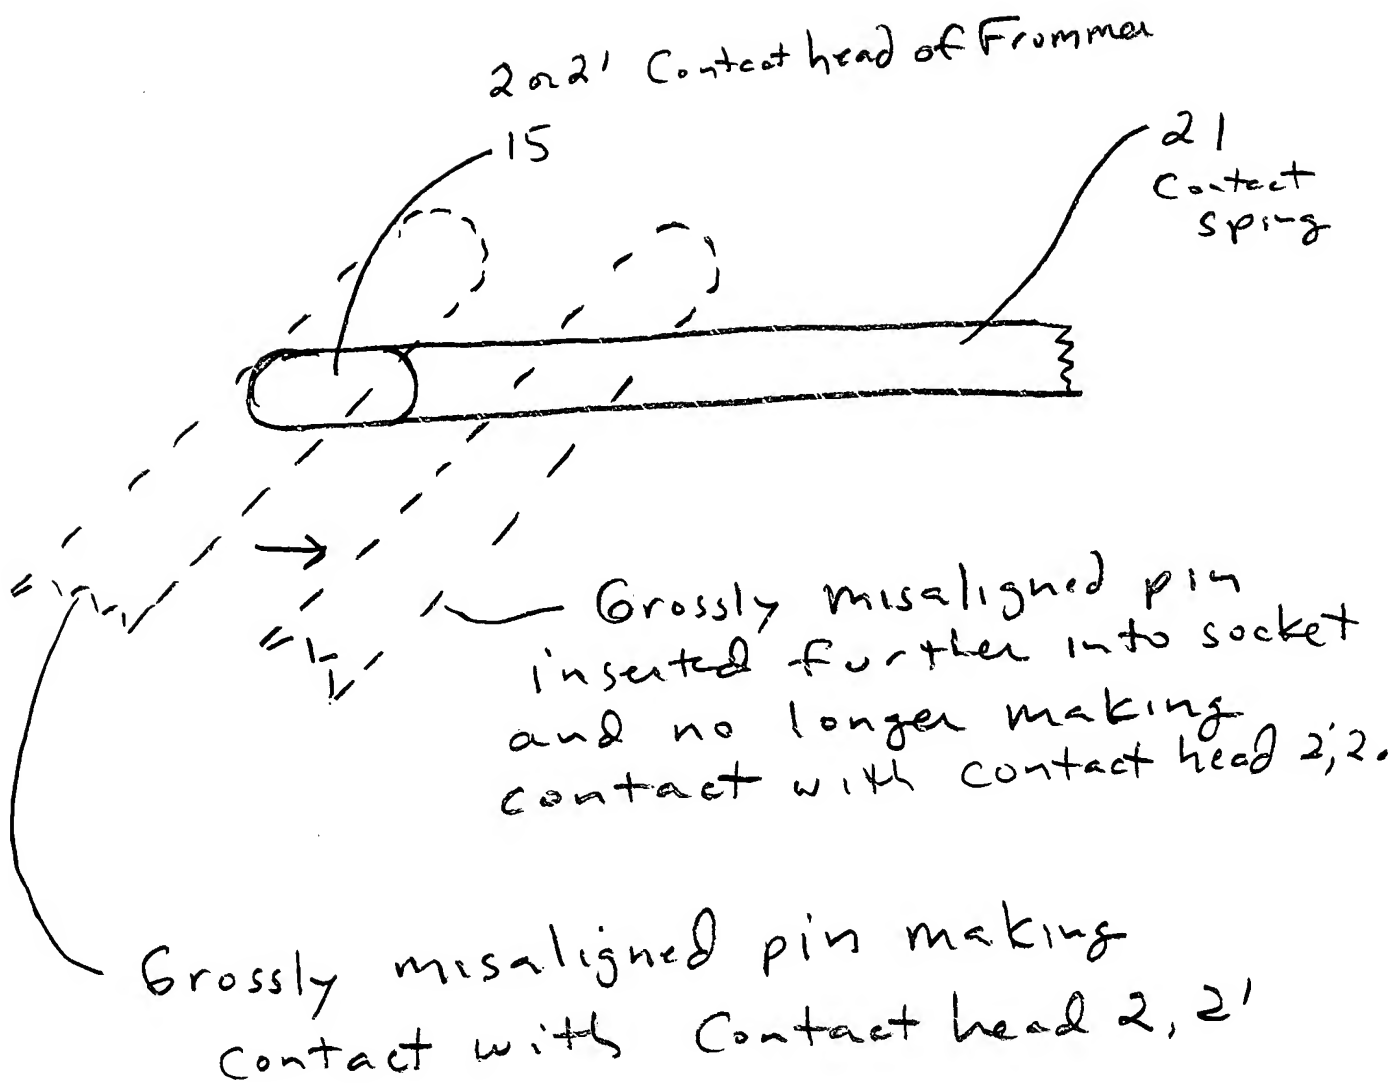 2 or 2' Contact head of Frommer
15
21
Contact
sping
Grossly misaligned pin
inserted further into socket
and no longer making
contact with contact head 2,'2.
Grossly misaligned pin making
contact with Contact head 2, 2'